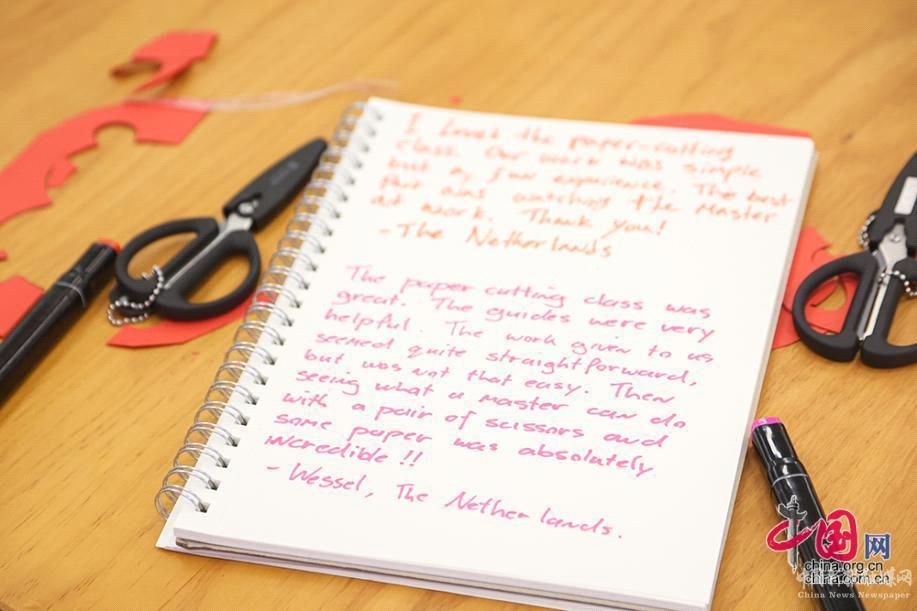 I loved the paper-cutting
class. Our work was simple
but a fun experience. The best
part was watching the Master
at work. Thank you!
- The Netherlands
The paper cutting class was
great. The guides were very
helpful. The work given to us
seemed quite straightforward,
but was not that easy. Then
seeing what a master can do
with a pair of scissors and
some paper was absolutely
incredible!!
- Wessel, The Netherlands.
中国网
china.org.cn
china.com.cn
China News Newspaper